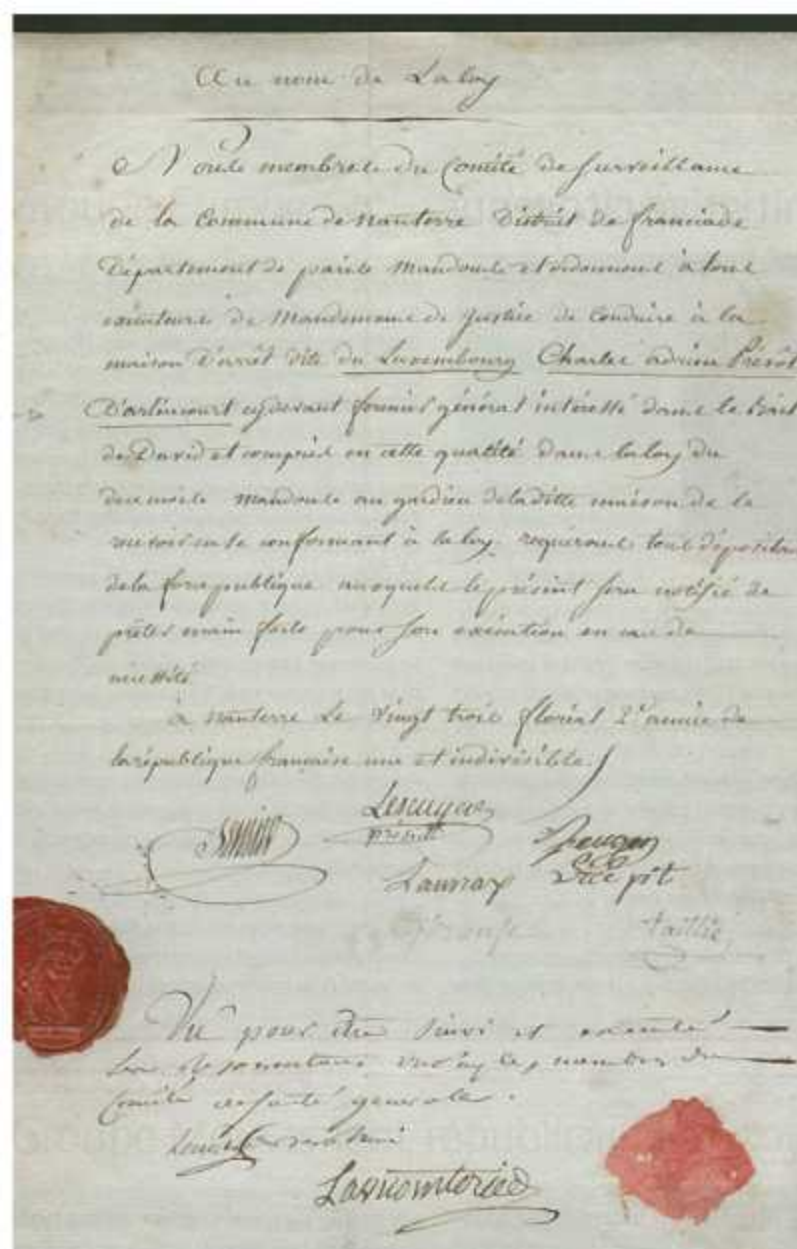 Au nom de La loy
Nous membres du Comité de surveillance
de la Commune de nanterre District de franciade
Département de paris Mandons et ordonnons à tous
exécuteurs de Mandemens de justice de Conduire à la
maison D'arrêt dite du Luxembourg Charles adrien Prévôt
D'arlincourt cydevant fermier général intéressé dans le Bail
de David et compris en cette qualité dans la loy du
mandons au gardien de laditte maison de le
recevoir en se conformant à la loy, requérons tous dépositaires
de la force publique auxquels le présent sera notifié de
prêter main forte pour son exécution en cas de
nécessité
à nanterre Le vingt trois floréal 2e année de
la république française une et indivisible
Lecuyer
présidt
Vu pour être suivi et exécuté
les membres du
Comité de sureté generale.